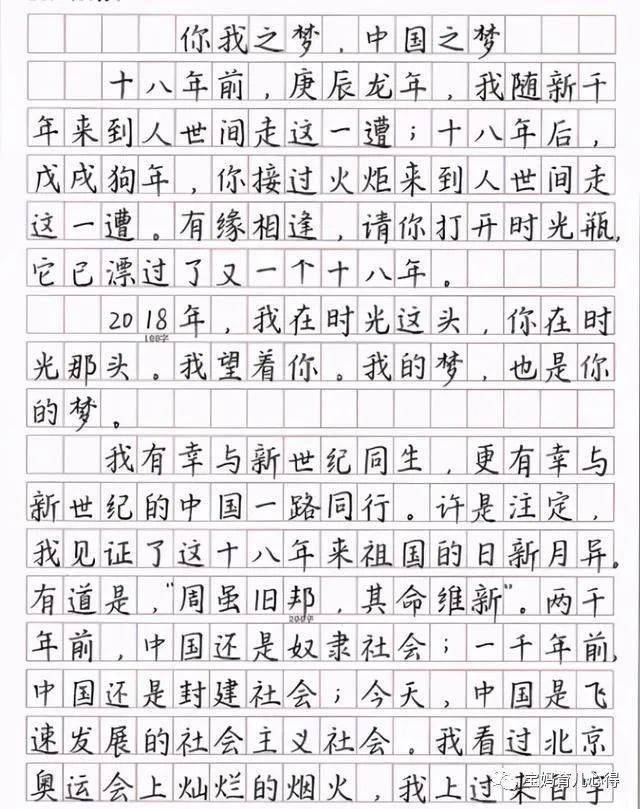 你我之梦，中国之梦
十八年前，庚辰龙年，我随新千
年来到人世间走这一遭；十八年后，
戊戌狗年，你接过火炬来到人世间走
这一遭。有缘相逢，请你打开时光瓶，
它已漂过了又一个十八年。
2018年，我在时光这头，你在时
100字
光那头。我望着你。我的梦，也是你
的梦。
我有幸与新世纪同生，更有幸与
新世纪的中国一路同行。许是注定，
我见证了这十八年来祖国的日新月异。
有道是，“周虽旧邦，其命维新”。两千
200字
年前，中国还是奴隶社会；一千年前，
中国还是封建社会；今天，中国是飞
速发展的社会主义社会。我看过北京
奥运会上灿烂的烟火，我上过来自千
宝妈育儿心得